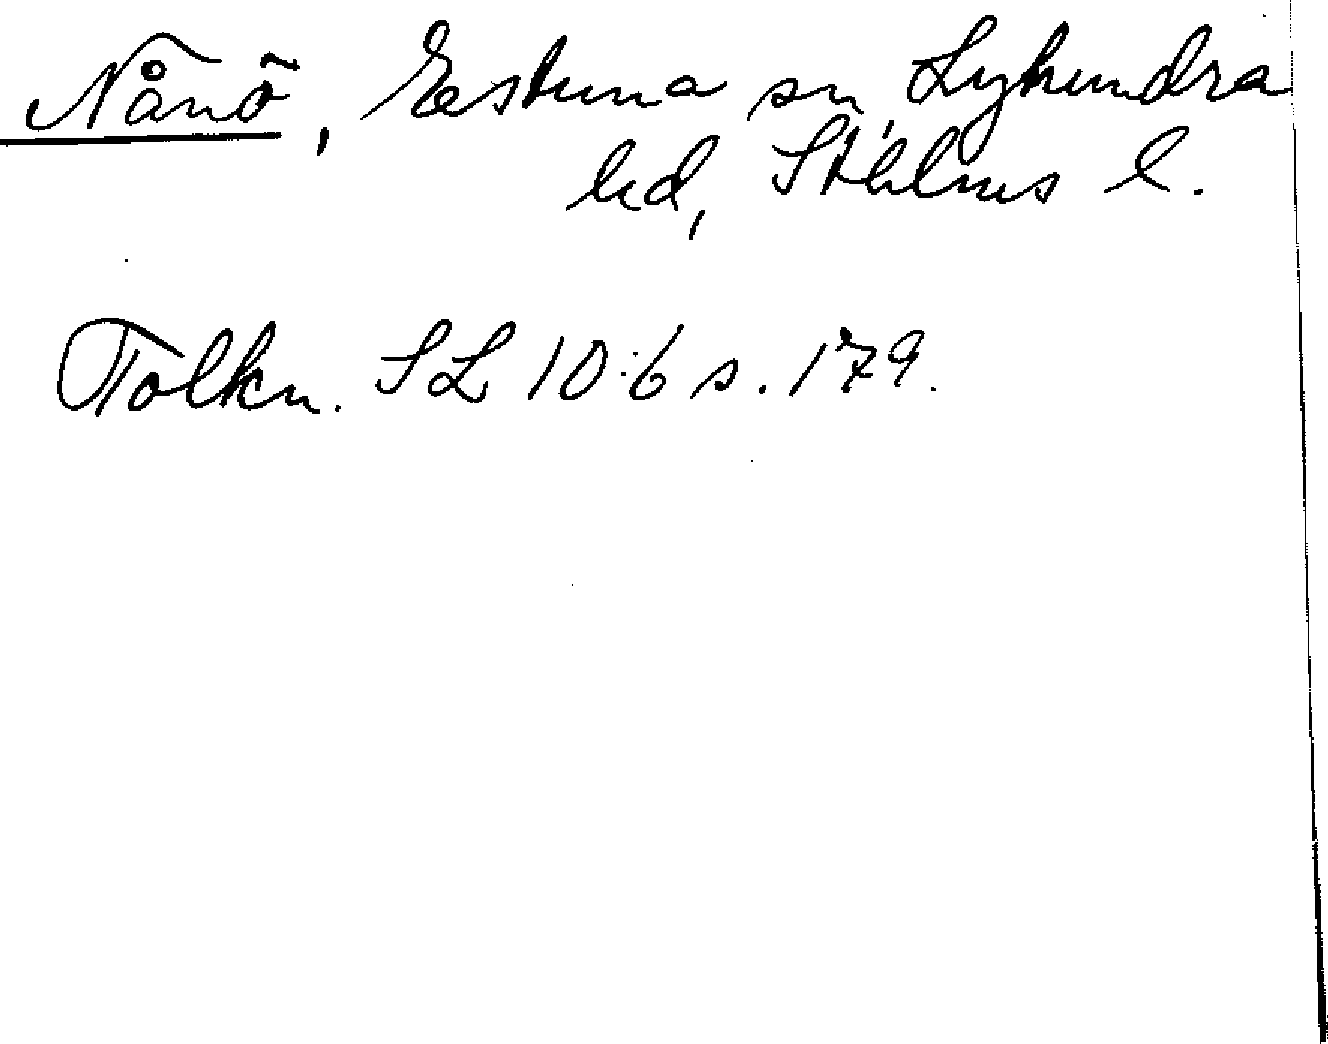 Nånö, Estuna sn, Lyhundra
hd, Sthlms l.
Tolkn. SL 10:6 s. 179.